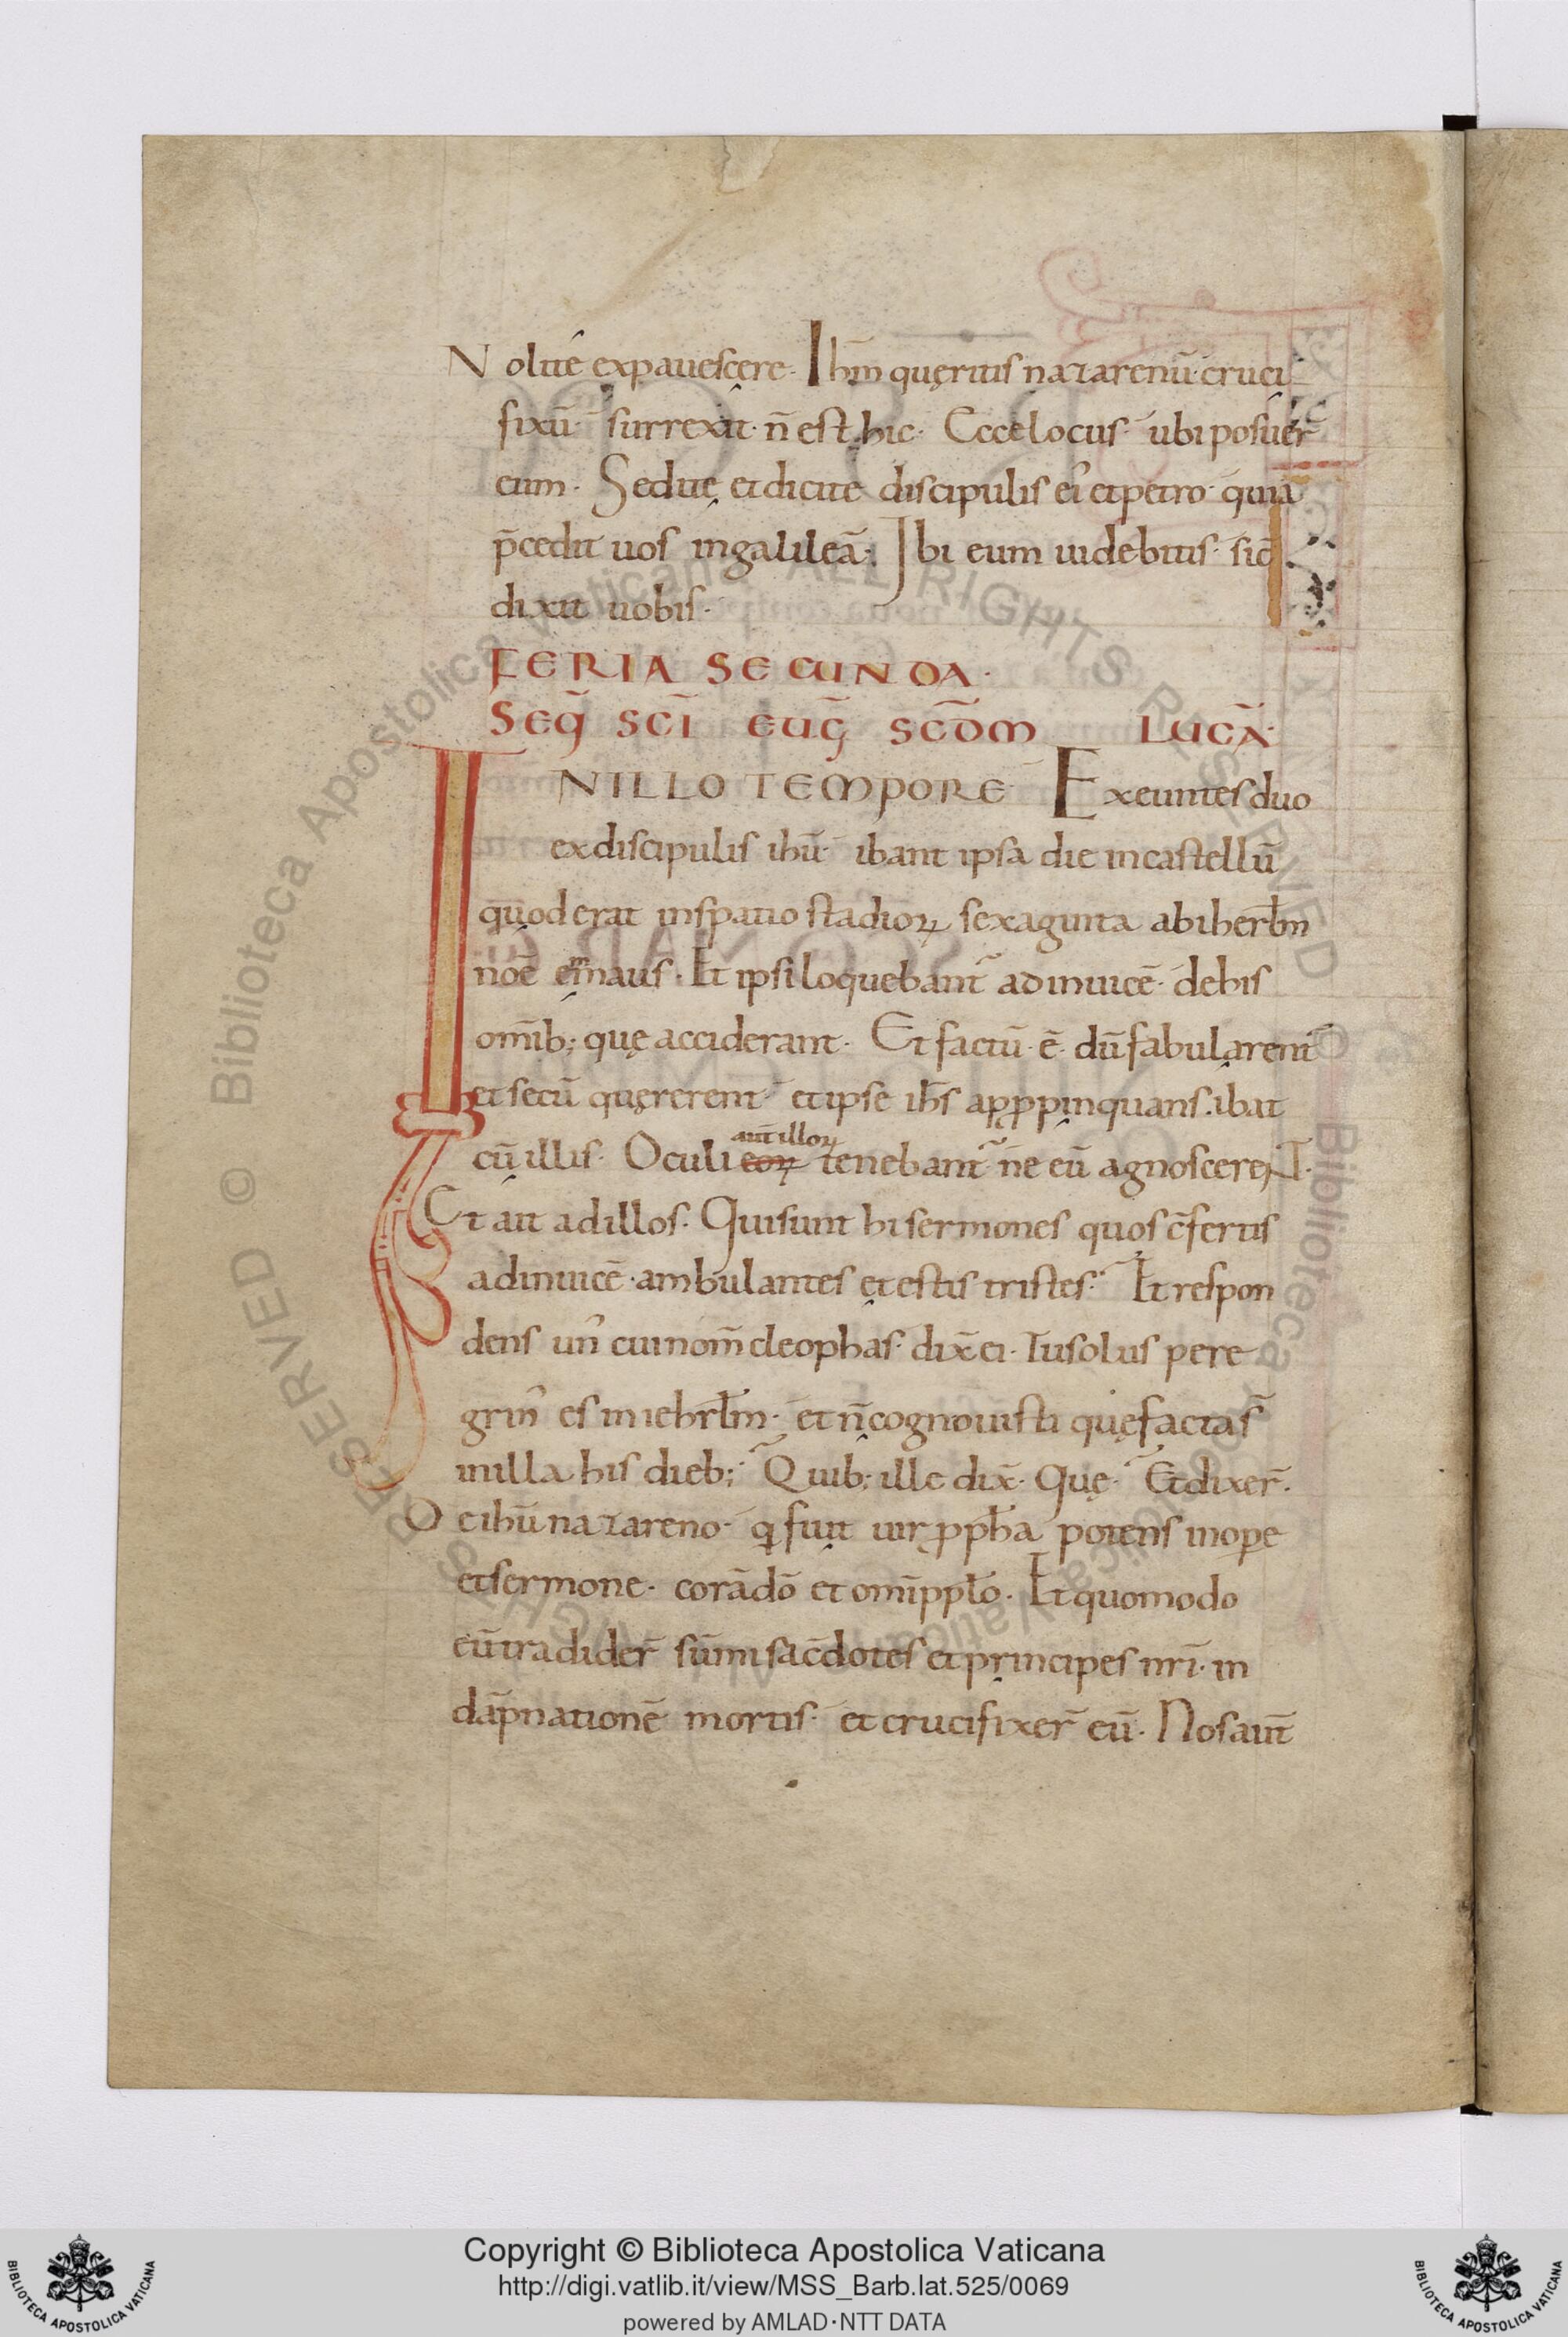 Nolite expauescere. Ihm̄ quęritis nazarenū cruci
fixū surrexit. n̄ est hic. Ecce locus ubi posuer̄
eum. Sed ite et dicite discipulis ei᾽ et petro quia
p̄cedit uos in galileā. Ibi eum uidebitis sic̄
dixit uobis.
FERIA SECUNDA.
SEQ̄ SCĪ EUḠ SCD̄M LUCĀ.
IN ILLO TEMPORE Exeuntes duo
ex discipulis ihū ibant ipsa die in castellū
quod erat in spatio stadioꝝ sexaginta ab iherl̄m
noē emmaus. Et ipsi loquebant᷑ ad inuicē de his
om̄ib; quę acciderant. Et factū ē dū fabularent᷑
et secū quererent et ipse ih̄s appꝓpinquans ibat
aut̄ illoꝝ
cū illis. Oculi eoꝝ tenebant᷑ ne eū agnoscerent.
Et ait ad illos. Qui sunt hi sermones quos c̄fertis
ad inuicē ambulantes et estis tristes. Et respon
dens un᾽ cui nom̄ cleophas dix̄ ei. Tu solus pere
grin᾽ es in iehrl̄m. et n̄ cognouisti quę facta s̄
in illa his dieb; Quib; ille dix̄. Quę. Et dixer̄.
De ihū nazareno. q̣ fuit uir ꝓph̄a potens in ope
et sermone. corā dō et om̄i ppl̄o. Et quomodo
eū tradider̄ sūmi sac̄dotes et principes nr̄i in
dāpnationē mortis et crucifixer̄ eū. Nos aut̄
Copyright © Biblioteca Apostolica Vaticana
http://digi.vatlib.it/view/MSS_Barb.lat.525/0069
powered by AMLAD·NTT DATA
BIBLIOTECA APOSTOLICA VATICANA
BIBLIOTECA APOSTOLICA VATICANA